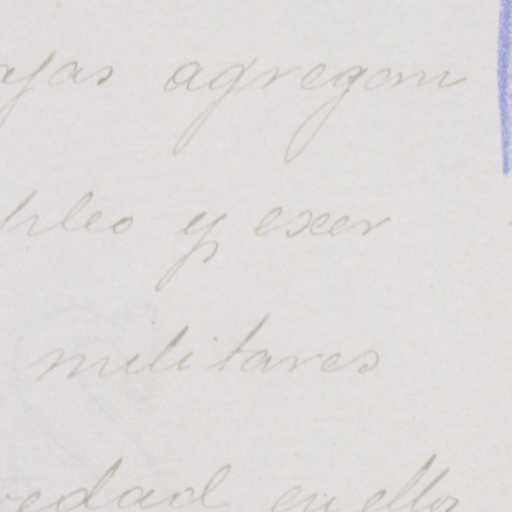 ajas agregan
pleo y exer
militares
edad en ellos